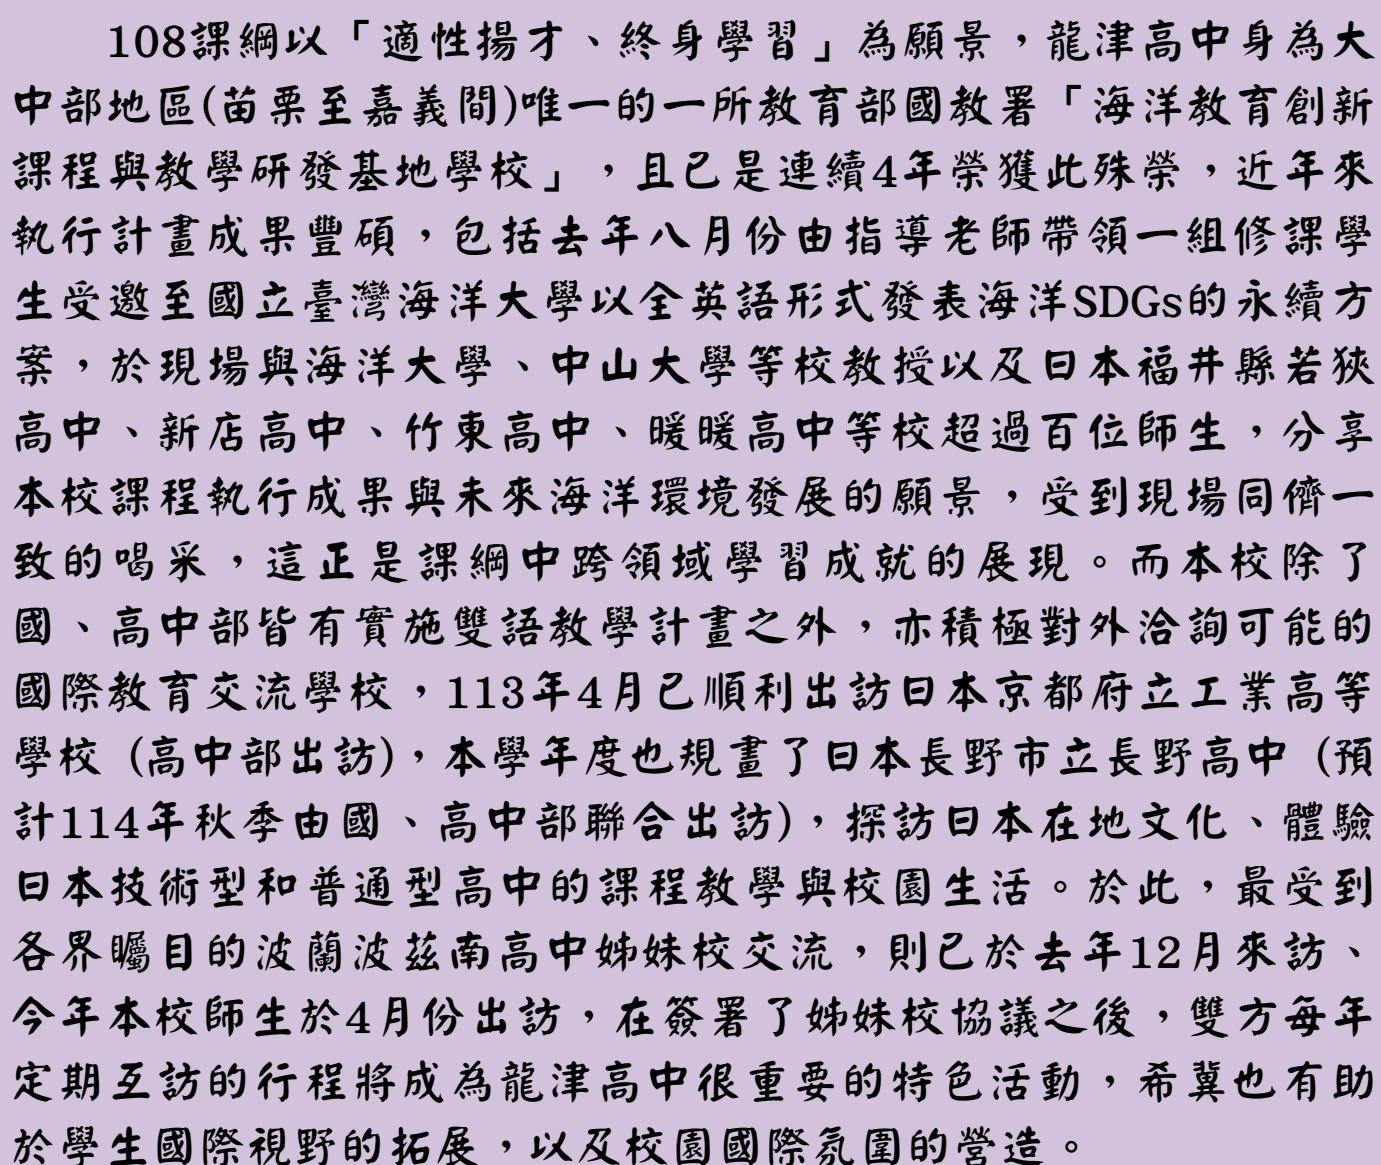 108課綱以「適性揚才、終身學習」為願景，龍津高中身為大
中部地區(苗栗至嘉義間)唯一的一所教育部國教署「海洋教育創新
課程與教學研發基地學校」，且已是連續4年榮獲此殊榮，近年來
執行計畫成果豐碩，包括去年八月份由指導老師帶領一組修課學
生受邀至國立臺灣海洋大學以全英語形式發表海洋SDGs的永續方
案，於現場與海洋大學、中山大學等校教授以及日本福井縣若狹
高中、新店高中、竹東高中、暖暖高中等校超過百位師生，分享
本校課程執行成果與未來海洋環境發展的願景，受到現場同儕一
致的喝采，這正是課綱中跨領域學習成就的展現。而本校除了
國、高中部皆有實施雙語教學計畫之外，亦積極對外洽詢可能的
國際教育交流學校，113年4月已順利出訪日本京都府立工業高等
學校 (高中部出訪)，本學年度也規畫了日本長野市立長野高中 (預
計114年秋季由國、高中部聯合出訪)，探訪日本在地文化、體驗
日本技術型和普通型高中的課程教學與校園生活。於此，最受到
各界矚目的波蘭波茲南高中姊妹校交流，則已於去年12月來訪、
今年本校師生於4月份出訪，在簽署了姊妹校協議之後，雙方每年
定期互訪的行程將成為龍津高中很重要的特色活動，希冀也有助
於學生國際視野的拓展，以及校園國際氛圍的營造。